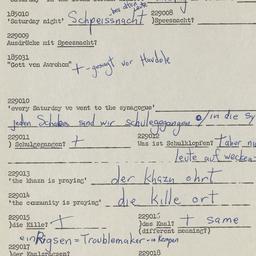 185010
'Saturday night' Schpeissnacht
bei alten Leute
229008
)Speesnacht?
229009
Ausdrücke mit Speesnacht?
185031
"Gott von Avrohom" + - gesagt vor Havdole
229010
'every Saturday we went to the synagogue'
jeden Schabes sand wir schulegegangen o/in die Sy
229011
) Schulgengangen? +
229012
Was ist Schulklopfen? + aber nu
Leute auf wecken
229013
'the khazn is praying' der Khazn ohrt
229014
'the community is praying' die Kille ort
229015
)die Kille? +
229016
)das Kaal? + same
(different meaning?)
ein Rigsen = Troublemaker - in Kempen
229017
229018